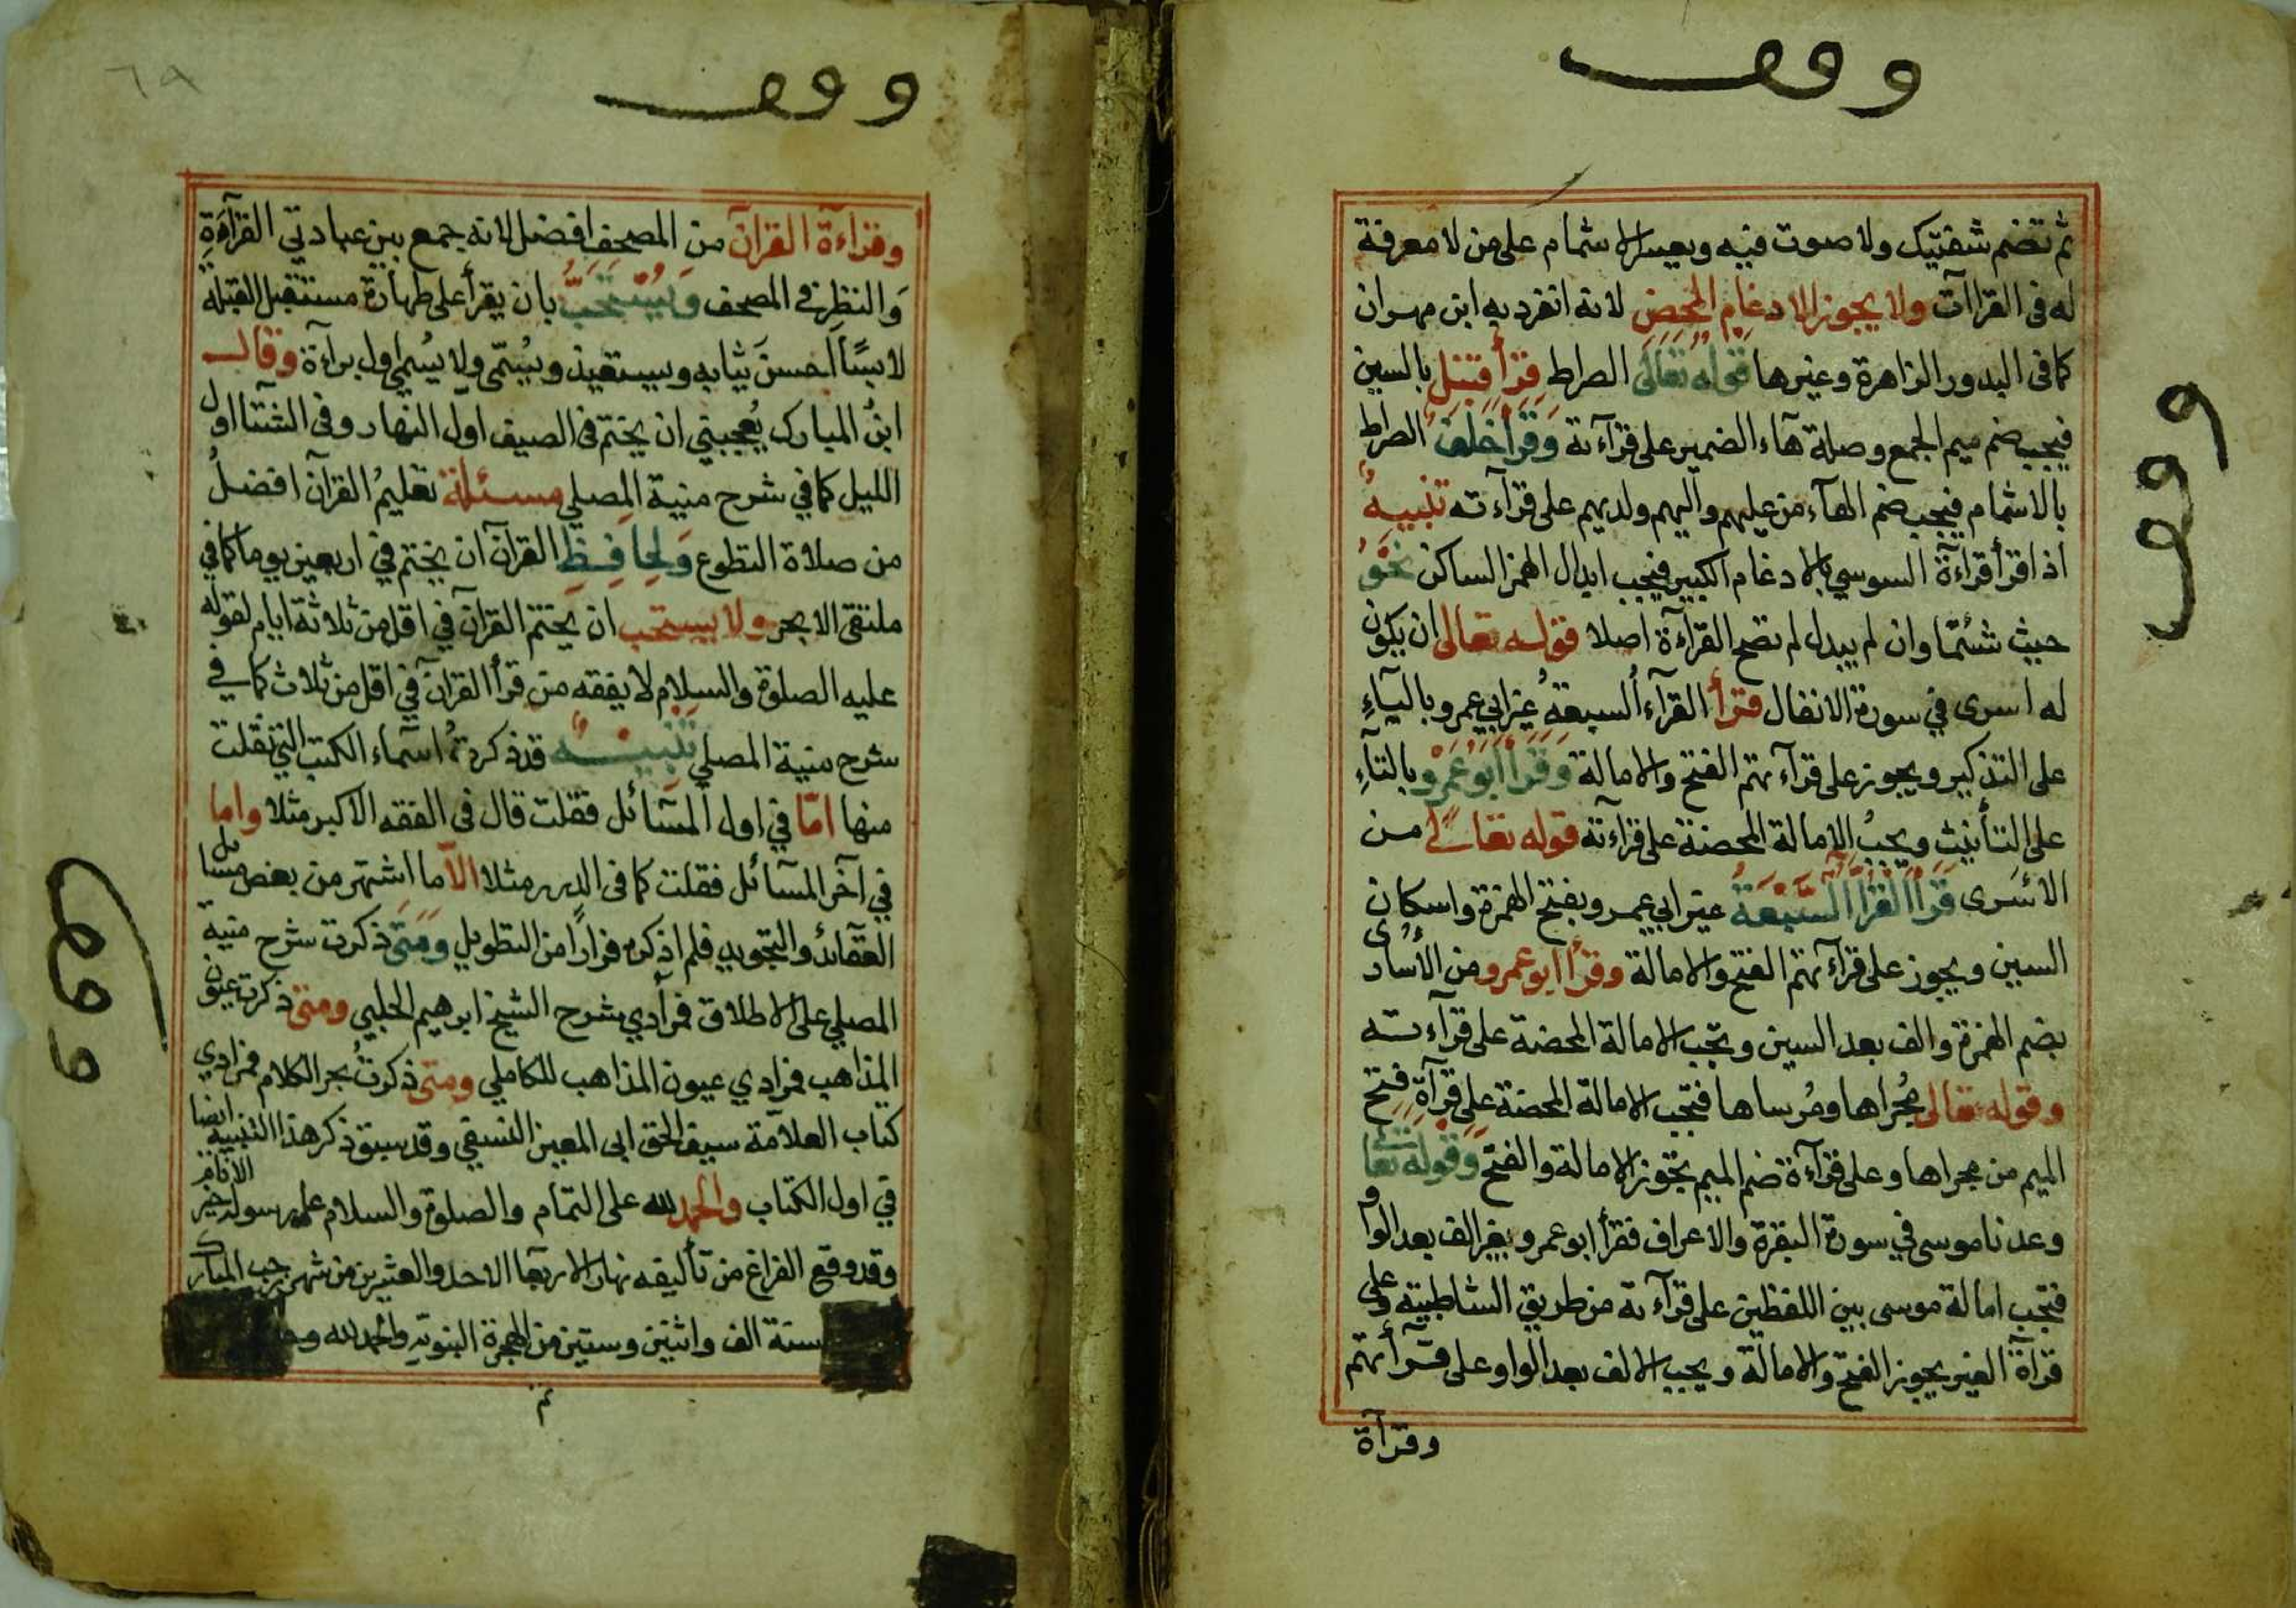 وقف
ثم تضم شفتيك ولا صوت فيه ويعسر الاشمام على من لا معرفة
له في القراآت ولا يجوز الادغام المحض لانه انفرد به ابن مهران
كما في البدور الزاهرة وغيرها قوله تعالى الصراط قرأ قنبل بالسين
فيجب ضم ميم الجمع وصلة هاء الضمير على قرآءته وقرأ خلف الصراط
بالاشمام فيجب ضم الهآء من عليهم واليهم ولديهم على قرآءته تنبيه
اذا قرأ قراءة السوسي بالادغام الكبير فيجب ابدال الهمز الساكن نحو
حيث شئتما وان لم يبدل لم تصح القرآءة اصلا قوله تعالى ان يكون
له اسرى في سورة الانفال قرأ القرآء السبعة غير ابي عمرو باليآء
على التذكير ويجوز على قرآءتهم الفتح والامالة وقرأ ابو عمرو بالتآء
على التأنيث ويجب الامالة المحضة على قراءته قوله تعالى من
الاسرى قرأ القرآء السبعة غير ابي عمرو بفتح الهمزة واسكان
السين ويجوز على قرآءتهم الفتح والامالة وقرأ ابو عمرو من الأسارى
بضم الهمزة والف بعد السين وتجب الامالة المحضة على قرآءته
وقوله تعالى مجراها ومرساها فتجب الامالة المحضة على قرآة فتح
الميم من مجراها وعلى قرآءة ضم الميم تجوز الامالة والفتح وقوله تعالى
وعدنا موسى في سورة البقرة والاعراف فقرأ ابو عمرو بغير الف بعد الواو
فتجب امالة موسى بين اللفظين على قرآءته من طريق الشاطبية وعلى
قرآة الغير يجوز الفتح والامالة ويجب الالف بعد الواو على قرآءتهم
وقرآة
وقف
وقف
٦٩
وقرآءة القرآن من المصحف افضل لانه جمع بين عبادتي القرآءة
والنظر في المصحف ويستحب بان يقرأ على طهارة مستقبل القبلة
لابسًا احسن ثيابه ويستعيذ ويسمّى ولا يسمى اول براءة وقال
ابن المبارك يعجبني ان يختم في الصيف اول النهار وفي الشتآء اول
الليل كما في شرح منية المصلي مسئلة تعليم القرآن افضل
من صلاة التطوع ولحافظ القرآن ان يختم في اربعين يوما كما في
ملتقى الابحر ولا يستحب ان يختم القرآن في اقل من ثلاثة ايام لقوله
عليه الصلوة والسلام لا يفقه من قرأ القرآن في اقل من ثلاث كما في
شرح منية المصلي تنبيه قد ذكرت اسماء الكتب التي نقلت
منها امّا في اول المسآئل فقلت قال في الفقه الاكبر مثلا واما
في آخر المسآئل فقلت كما في الدرر مثلا الّا ما اشتهر من بعض مسائل
العقآئد والتجويد فلم اذكره فرارًا من التطويل ومتى ذكرت شرح منية
المصلي على الاطلاق فمرادي شرح الشيخ ابرهيم الحلبي ومتى ذكرت عيون
المذاهب فمرادي عيون المذاهب للكاملي ومتى ذكرت بحر الكلام فمرادي
كتاب العلامة سيف الحق ابى المعين النسفي وقد سبق ذكر هذا التنبيه ايضا
في اول الكتاب والحمد لله على التمام والصلوة والسلام على رسوله خير الانام
وقد وقع الفراغ من تأليفه نهار الاربعا الاحد والعشرين من شهر رجب المبارك
سنة الف واثنين وستين من الهجرة النبوية والحمد لله
تم
وقف